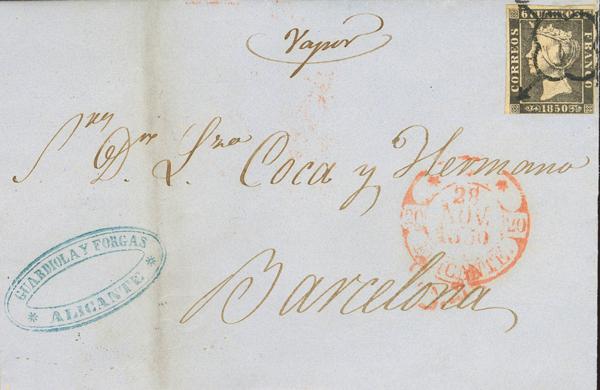 Vapor
6 CUARTOS
CORREOS
FRANCO
1850
Sres Dn Lzo Coca y Hermano
20 28 NOV 1850 20
ALICANTE
GUARDIOLA Y FORGAS
* ALICANTE *
Barcelona